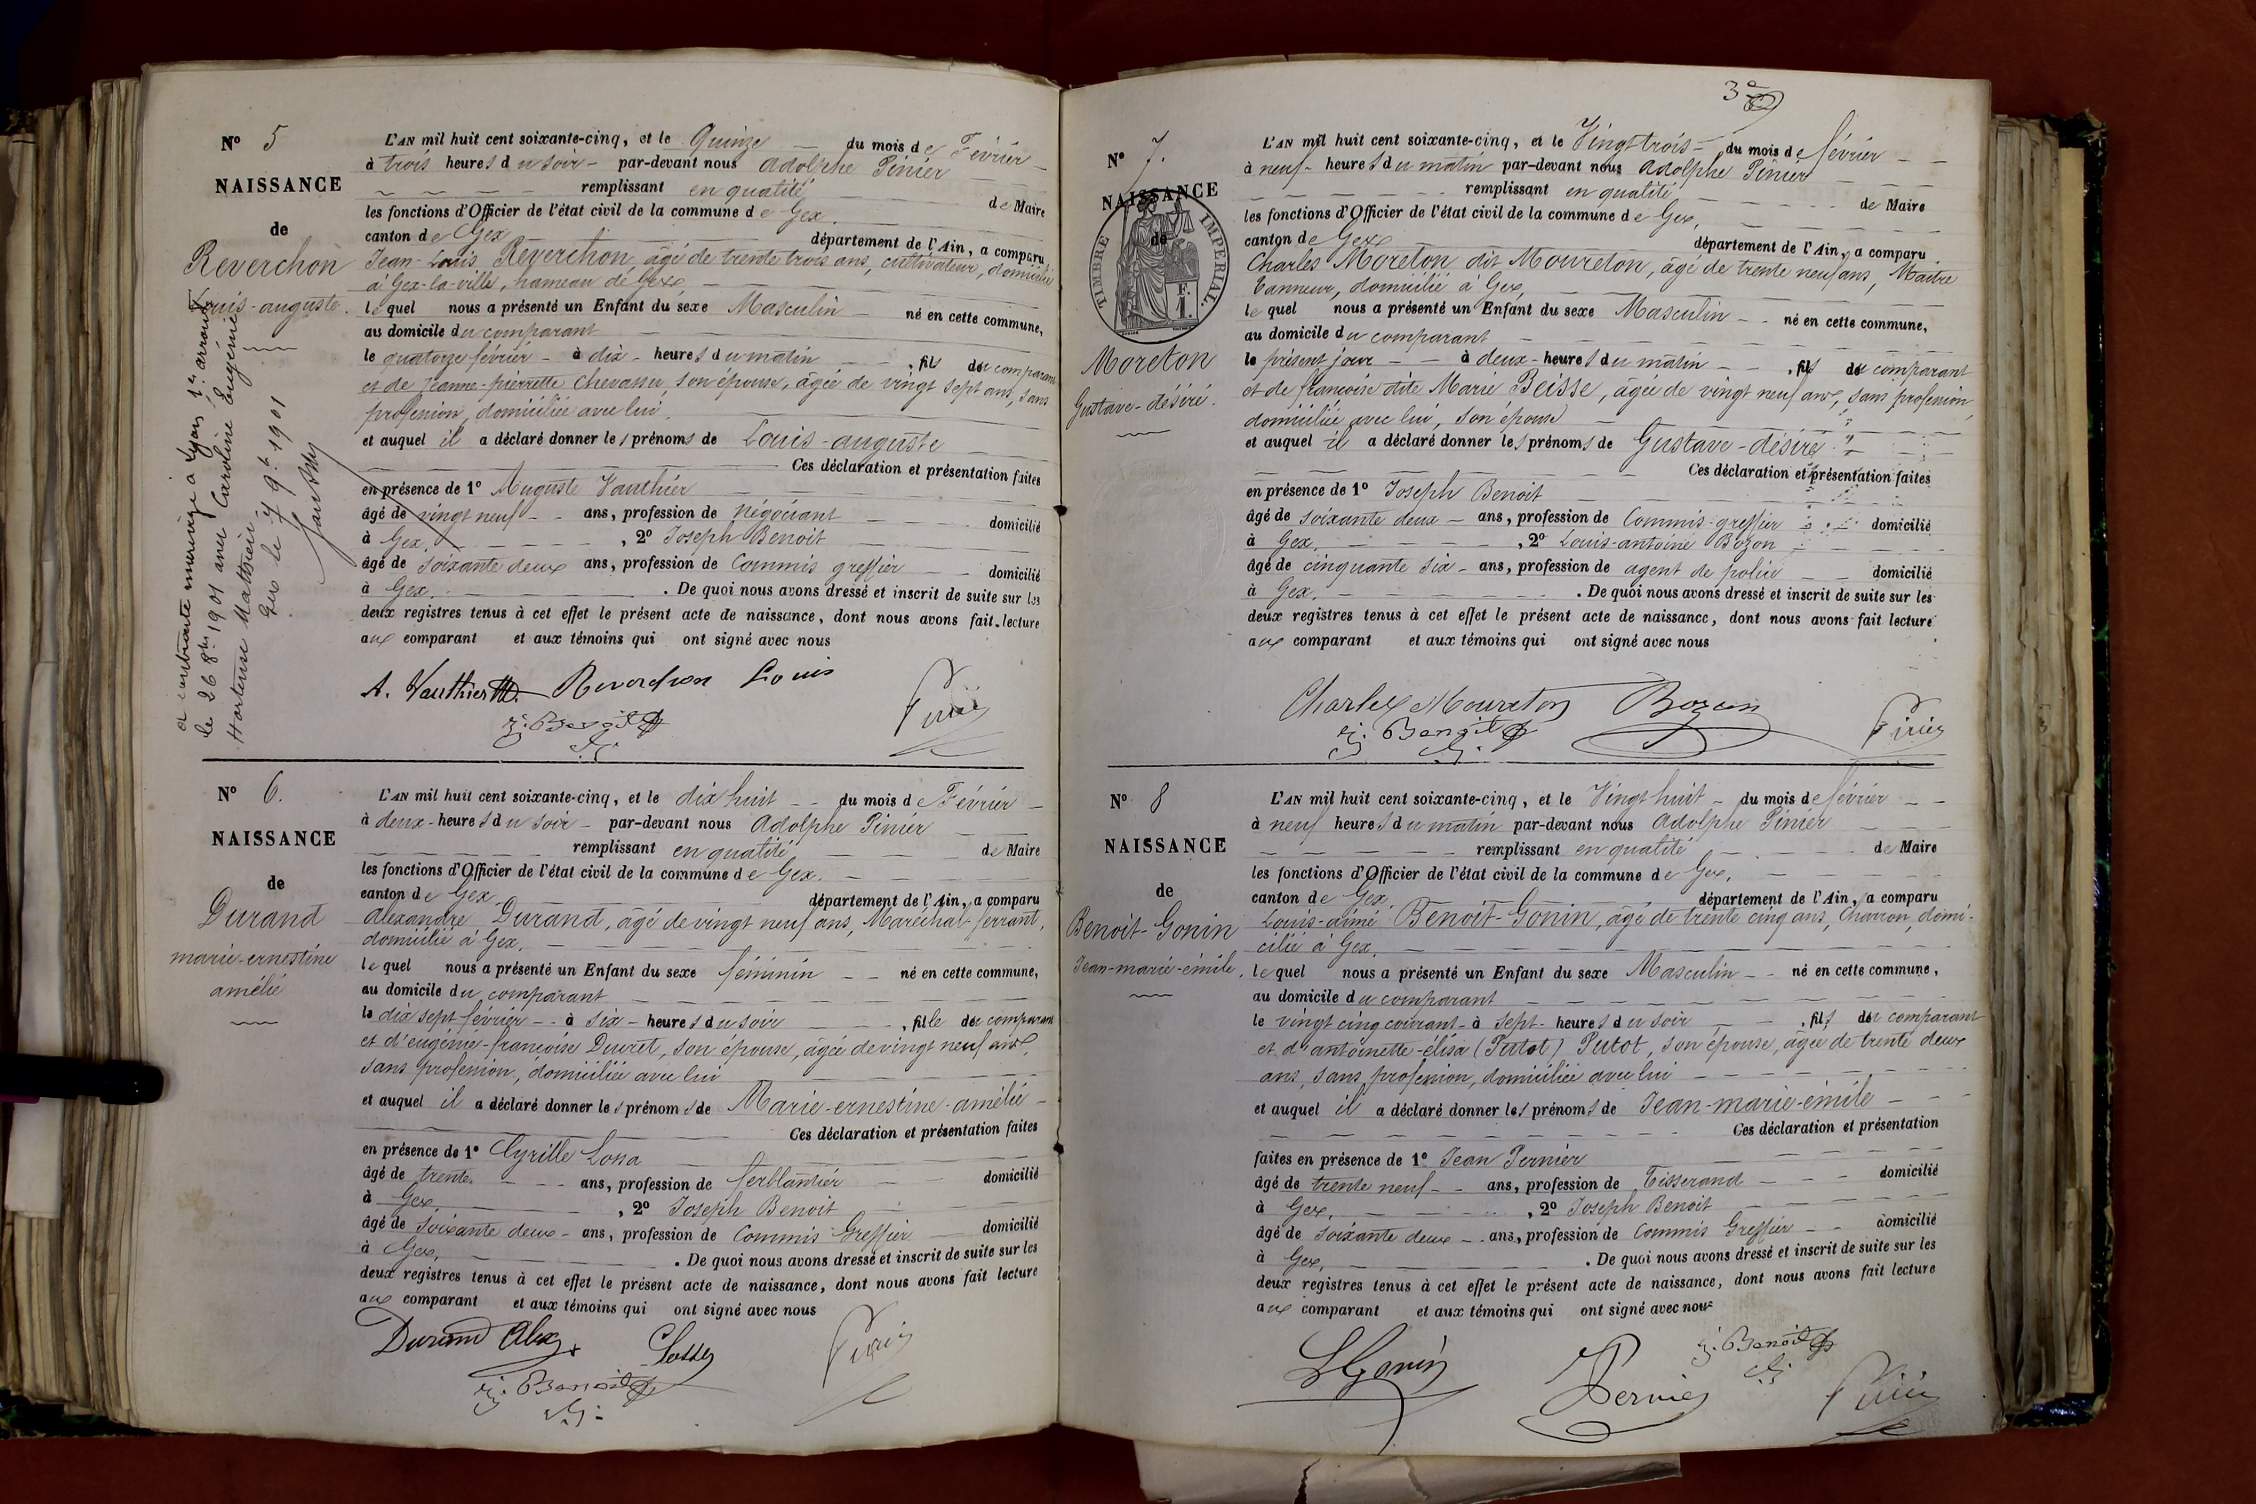 N° 5
NAISSANCE
de
Reverchon
Louis-auguste.
a contracté mariage à Lyon 1er arront
le 26 8bre 1901 avec Caroline Eugénie
Hortense
Gex le 7 9bre 1901
L'AN mil huit cent soixante-cinq, et le Quinze du mois de Février
à trois heures du soir par-devant nous Adolphe Pinier
remplissant en qualité de Maire
les fonctions d'Officier de l'état civil de la commune de Gex.
canton de Gex département de l'Ain, a comparu
Jean-Louis Reverchon âgé de trente trois ans, cultivateur, domicilié
à Gex-la-ville, hameau de Gex,
lequel nous a présenté un Enfant du sexe Masculin né en cette commune,
au domicile du comparant
le quatorze février à dix heures du matin, fils du comparant
et de Jeanne-pierrette Chevassu son épouse, âgée de vingt sept ans, sans
profession, domiciliée avec lui.
et auquel il a déclaré donner les prénoms de Louis-auguste
Ces déclaration et présentation faites
en présence de 1° Auguste Vauthier
âgé de vingt neuf ans, profession de négociant domicilié
à Gex, 2° Joseph Benoit
âgé de soixante deux ans, profession de Commis greffier domicilié
à Gex. De quoi nous avons dressé et inscrit de suite sur les
deux registres tenus à cet effet le présent acte de naissance, dont nous avons fait lecture
aux comparant et aux témoins qui ont signé avec nous
A. Vauthier Reverchon Louis
j. Benoit Pinier
N° 6.
NAISSANCE
de
Durand
marie-ernestine
amélie
L'AN mil huit cent soixante-cinq, et le dix huit du mois de Février
à deux heures du soir par-devant nous Adolphe Pinier
remplissant en qualité de Maire
les fonctions d'Officier de l'état civil de la commune de Gex.
canton de Gex. département de l'Ain, a comparu
Alexandre Durand, âgé de vingt neuf ans, Maréchal ferrant,
domicilié à Gex,
lequel nous a présenté un Enfant du sexe féminin né en cette commune,
au domicile du comparant
le dix sept février à six heures du soir, fille du comparant
et d'eugénie-françoise Ducret, son épouse, âgée de vingt neuf ans,
sans profession, domiciliée avec lui
et auquel il a déclaré donner les prénoms de Marie-ernestine-amélie
Ces déclaration et présentation faites
en présence de 1° Cyrille
âgé de trente ans, profession de ferblantier domicilié
à Gex, 2° Joseph Benoit
âgé de soixante deux ans, profession de Commis Greffier domicilié
à Gex. De quoi nous avons dressé et inscrit de suite sur les
deux registres tenus à cet effet le présent acte de naissance, dont nous avons fait lecture
aux comparant et aux témoins qui ont signé avec nous
Durand Alex
j. Benoit Pinier
3e
N° 7.
NAISSANCE
de
TIMBRE IMPÉRIAL.
F.
1.
Moreton
Gustave-désiré.
L'AN mil huit cent soixante-cinq, et le Vingt trois du mois de février
à neuf heures du matin par-devant nous Adolphe Pinier
remplissant en qualité de Maire
les fonctions d'Officier de l'état civil de la commune de Gex,
canton de Gex département de l'Ain, a comparu
Charles Moreton dit Moureton, âgé de trente neuf ans, Maître
tanneur, domicilié à Gex,
lequel nous a présenté un Enfant du sexe Masculin né en cette commune,
au domicile du comparant
le présent jour à deux heures du matin, fils du comparant
et de françoise dite Marie Beisse, âgée de vingt neuf ans, sans profession,
domiciliée avec lui, son épouse
et auquel il a déclaré donner les prénoms de Gustave-désiré
Ces déclaration et présentation faites
en présence de 1° Joseph Benoit
âgé de soixante deux ans, profession de Commis-greffier domicilié
à Gex, 2° Louis-antoine Bozon
âgé de cinquante six ans, profession de agent de police domicilié
à Gex. De quoi nous avons dressé et inscrit de suite sur les
deux registres tenus à cet effet le présent acte de naissance, dont nous avons fait lecture
aux comparant et aux témoins qui ont signé avec nous
Charles Moureton Bozon
j. Benoit Pinier
N° 8
NAISSANCE
de
Benoit-Gonin
Jean-marie-émile.
L'AN mil huit cent soixante-cinq, et le Vingt huit du mois de février
à neuf heures du matin par-devant nous Adolphe Pinier
remplissant en qualité de Maire
les fonctions d'Officier de l'état civil de la commune de Gex,
canton de Gex. département de l'Ain, a comparu
Louis-aimé Benoit-Gonin, âgé de trente cinq ans, Charron, domi-
cilié à Gex,
lequel nous a présenté un Enfant du sexe Masculin né en cette commune,
au domicile du comparant
le vingt cinq courant à sept heures du soir, fils du comparant
et d'antoinette-élisa (Putot) Putot, son épouse, âgée de trente deux
ans, sans profession, domiciliée avec lui
et auquel il a déclaré donner les prénoms de Jean-marie-émile
Ces déclaration et présentation
faites en présence de 1° Jean Pernier
âgé de trente neuf ans, profession de Tisserand domicilié
à Gex, 2° Joseph Benoit
âgé de soixante deux ans, profession de Commis Greffier domicilié
à Gex, De quoi nous avons dressé et inscrit de suite sur les
deux registres tenus à cet effet le présent acte de naissance, dont nous avons fait lecture
aux comparant et aux témoins qui ont signé avec nous
j. Benoit
LGonin Pernier Pinier